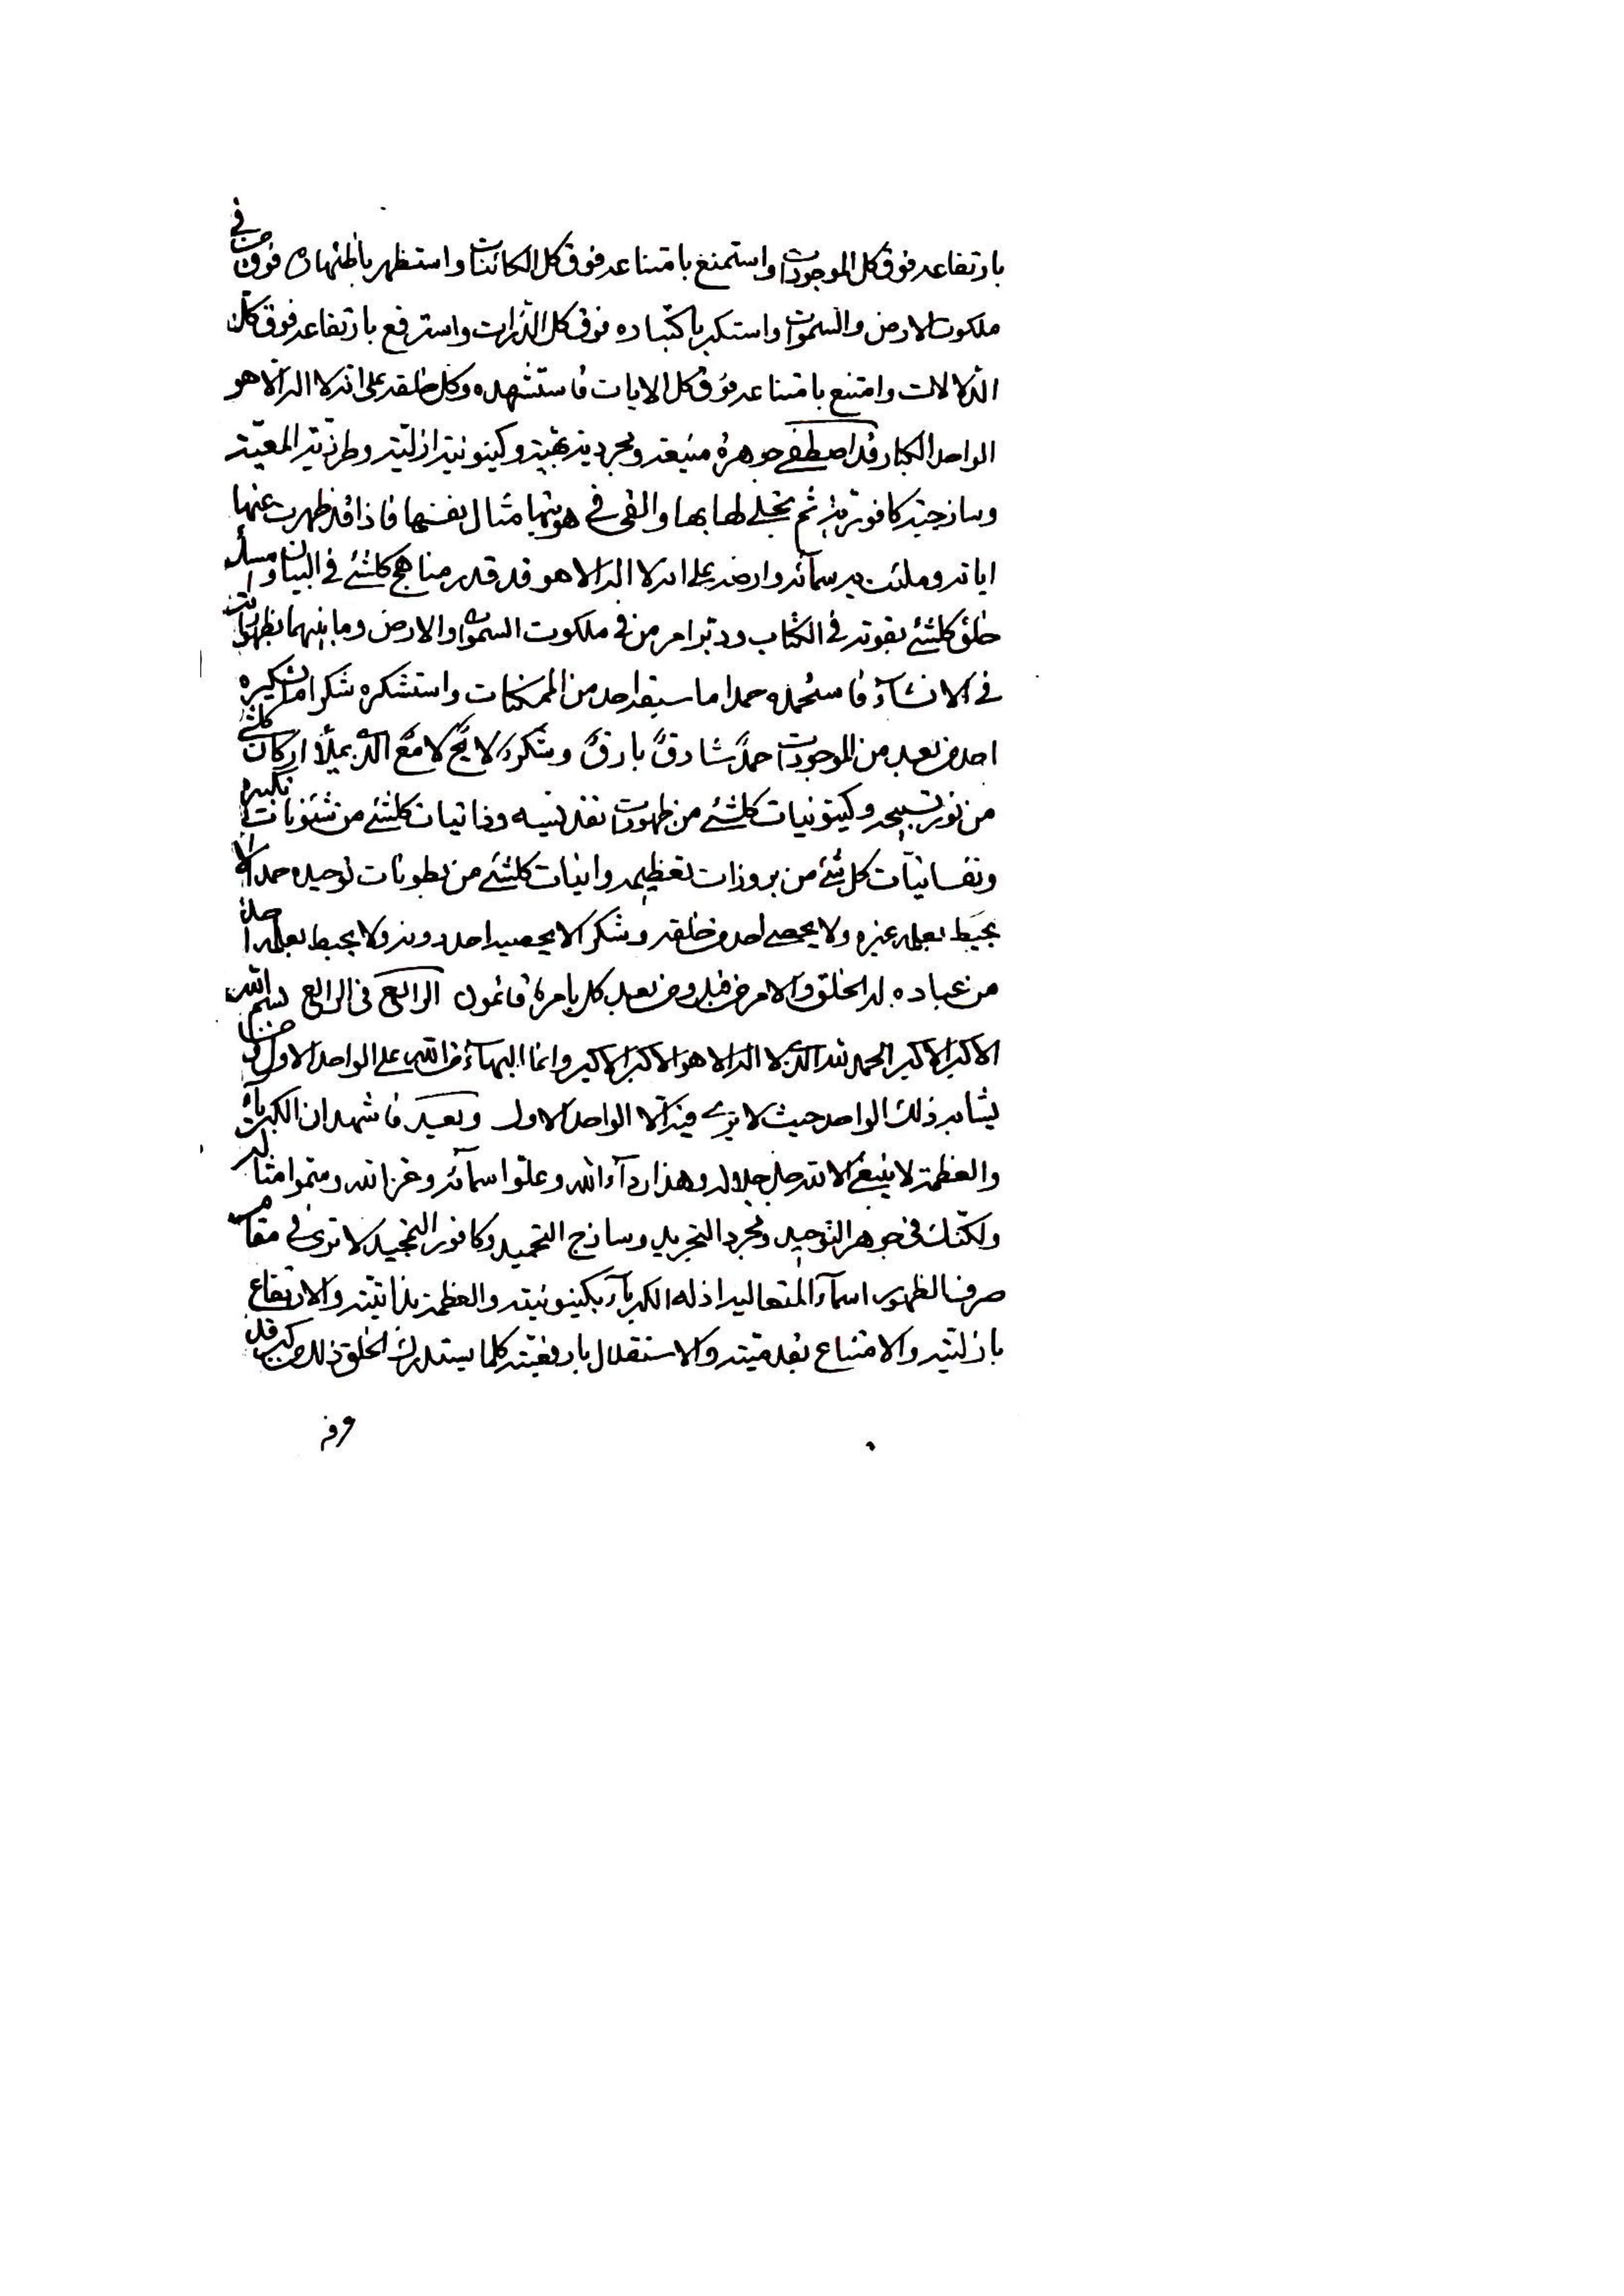 بارتفاعه فوق كل الموجودات واستمنع بامتناعه فوق كل الكائنات واستظهر باظتهاره فوق من في
ملكوت الارض والسموات واستكبر باكتباره فوق كل الذرات واسترفع بارتفاعه فوق كل
الدلالات وامتنع بامتناعه فوق كل الايات فاستشهده وكل خلقه على انه لا اله الا هو
الواحد الكبار قد اصطفى جوهرة منيعة ومجردية وكينونية ازلية وطرزية المعية
وساذجية كافورية ثم تجلى لها بها والقى في هويتها مثال نفسها فاذا قد ظهرت عنها
اياته وملئت به سمائه وارضه على انه لا اله الا هو قد قدر مناهج كلشئ في البيان
خلق كلشئ بقوته في الكتاب ودبر امر من في ملكوت السموات والارض وما بينهما بظهورات
في الانشاء فاستحمده حمدا ما سبقه احد من الممكنات واستشكره شكرا ما يشكره
احد من بعد من الموجودات حمدا شارقا بارقا وشكرا لايحا لامعا الذي يملأ اركان كلشئ
من نور تسبيحه وكينونيات كلشئ من ظهورات تقديسه وذاتيات كلشئ من شئونات تكبيره
ونفسانيات كل شئ من بروزات تعظيمه وانيات كلشئ من بطونات توحيده حمدا لا
يحيط بعلمه غيره ولا يحصى احد من خلقه وشكرا لا يحصيه احد دونه ولا يحيط بعلمه احد
من عباده له الخلق والامر من قبل ومن بعد كل بامره قائمون الرابع في الرابع بسم الله
الاكبر الاكبر الحمد لله الذي لا اله الا هو الاكبر الاكبر وانما البهاء من الله على الواحد الاول ومن
يشابه ذلك الواحد حيث لا يرى فيه الا الواحد الاول وبعد فاشهد ان الكبرياء
والعظمة لا ينبغي الا لله جل جلاله وهذا رداء الله وعلو اسمائه وعز الله وسمو امثاله
ولكنك في جوهر التوحيد ومجرد التجريد وساذج التحميد وكافور التمجيد لا ترى في مقام
صرف الظهور اسماء المتعاليه اذ له الكبرياء بكينونيته والعظمة بذاتيته والارتفاع
بازليته والامتناع بقدميته والاستقلال برفعيته كلما يستدرك الخلق ذلك من كبر قد